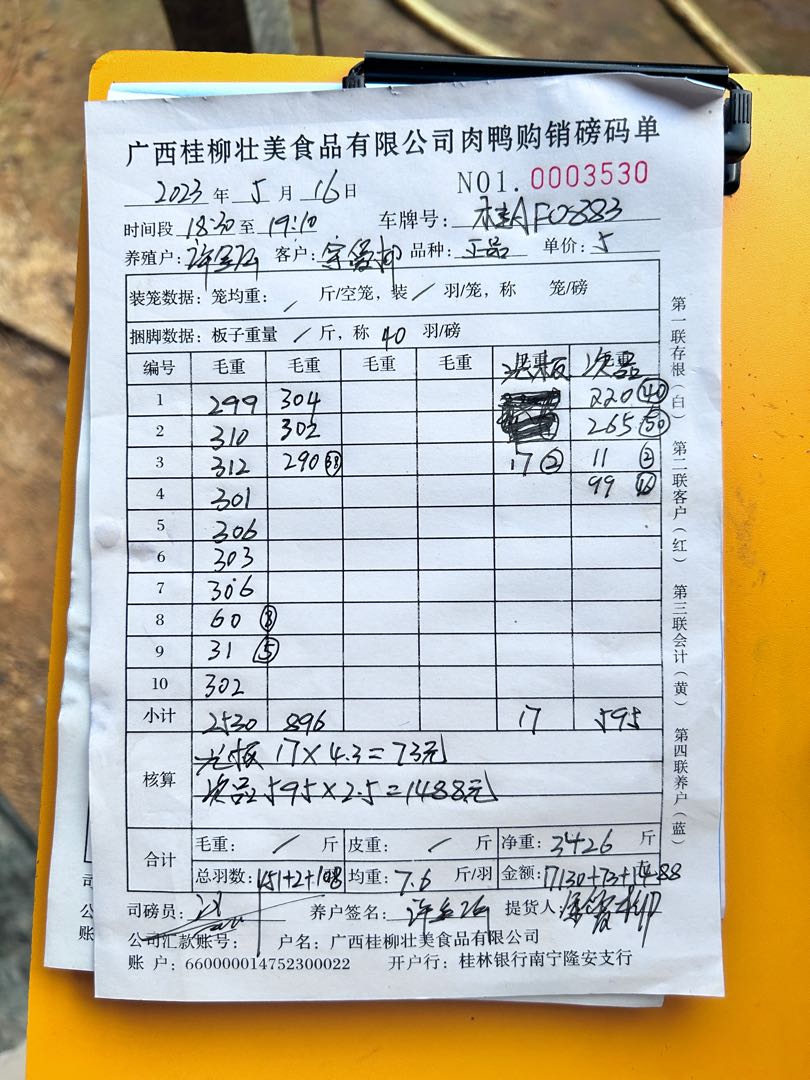 广西桂柳壮美食品有限公司肉鸭购销磅码单
2023年5月16日 NO1.0003530
时间段18:30至19:10 车牌号:桂AF0883
养殖户:许 客户: 品种:正品 单价:5
装笼数据:笼均重:/斤/空笼,装/羽/笼,称 笼/磅
捆脚数据:板子重量/斤,称40羽/磅
编号 毛重 毛重 毛重 毛重 次品
1 299 304 220 40
2 310 302 265 50
3 312 290 38 17 2 11 2
4 301 99 16
5 306
6 303
7 306
8 60 8
9 31 5
10 302
小计 2530 896 17 595
核算 光板 17×4.3=73元
次品 595×2.5=1488元
合计 毛重:/斤 皮重:/斤 净重:3426斤
总羽数:451+2+108 均重:7.6斤/羽 金额:17130+73+1488
司磅员: 养户签名:许 提货人:
公司汇款账号: 户名:广西桂柳壮美食品有限公司
账户:660000014752300022 开户行:桂林银行南宁隆安支行
第一联存根(白) 第二联客户(红) 第三联会计(黄) 第四联养户(蓝)
司
公
账